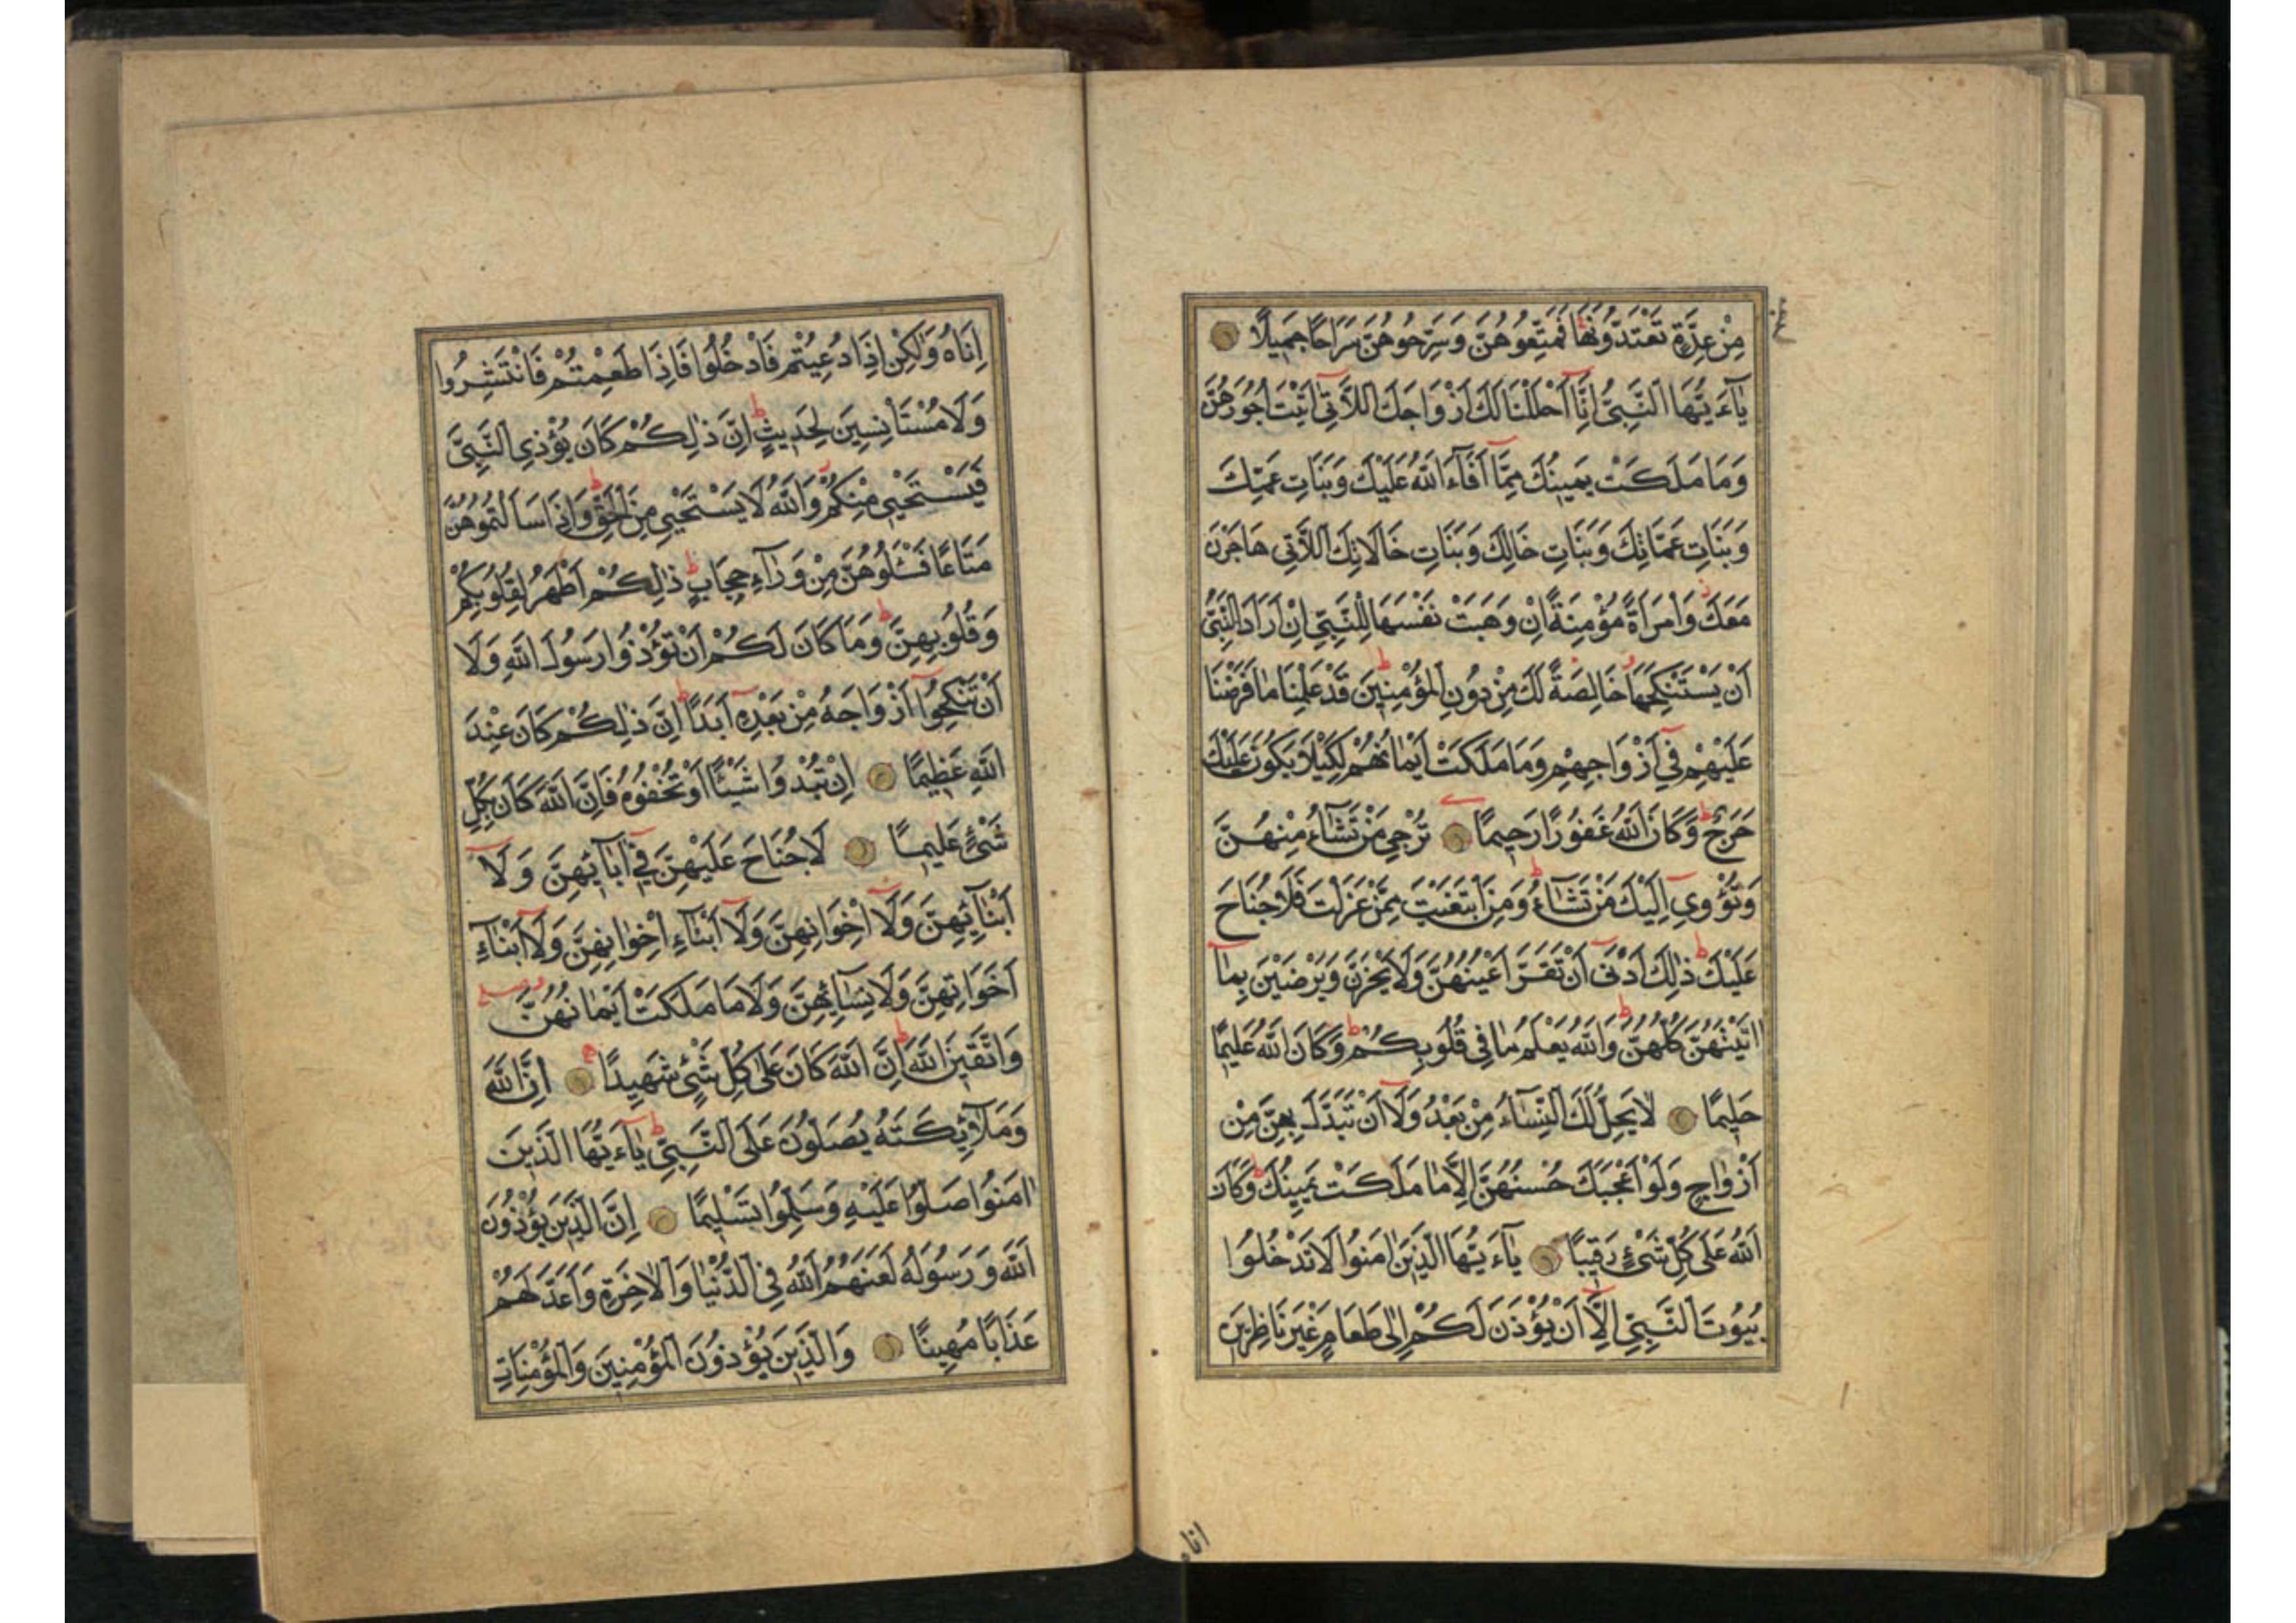 مِنْ عِدَّةٍ تَعْتَدُّونَهَا فَمَتِّعُوهُنَّ وَسَرِّحُوهُنَّ سَرَاحًا جَمِيلًا
يَاءَيُّهَا النَّبِيُّ إِنَّا أَحْلَلْنَا لَكَ أَزْوَاجَكَ اللَّاتِي اتَيْتَ أُجُورَهُنَّ
وَمَا مَلَكَتْ يَمِينُكَ مِمَّا أَفَاءَ اللهُ عَلَيْكَ وَبَنَاتِ عَمِّكَ
وَبَنَاتِ عَمَّاتِكَ وَبَنَاتِ خَالِكَ وَبَنَاتِ خَالَاتِكَ اللَّاتِي هَاجَرْنَ
مَعَكَ وَامْرَأَةً مُؤْمِنَةً اِنْ وَهَبَتْ نَفْسَهَا لِلنَّبِيِّ اِنْ اَرَادَ النَّبِيُّ
اَنْ يَسْتَنْكِحَهَا خَالِصَةً لَكَ مِنْ دُونِ الْمُؤْمِنِينَ قَدْ عَلِمْنَا مَا فَرَضْنَا
عَلَيْهِمْ فِي اَزْوَاجِهِمْ وَمَا مَلَكَتْ اَيْمَانُهُمْ لِكَيْلَا يَكُونَ عَلَيْكَ
حَرَجٌ وَكَانَ اللهُ غَفُورًا رَحِيمًا تُرْجِي مَنْ تَشَاءُ مِنْهُنَّ
وَتُؤْوِي اِلَيْكَ مَنْ تَشَاءُ وَمَنِ ابْتَغَيْتَ مِمَّنْ عَزَلْتَ فَلَا جُنَاحَ
عَلَيْكَ ذٰلِكَ اَدْنٰى اَنْ تَقَرَّ اَعْيُنُهُنَّ وَلَا يَحْزَنَّ وَيَرْضَيْنَ بِمَا
اتَيْتَهُنَّ كُلُّهُنَّ وَاللهُ يَعْلَمُ مَا فِي قُلُوبِكُمْ وَكَانَ اللهُ عَلِيمًا
حَلِيمًا لَا يَحِلُّ لَكَ النِّسَاءُ مِنْ بَعْدُ وَلَا اَنْ تَبَدَّلَ بِهِنَّ مِنْ
اَزْوَاجٍ وَلَوْ اَعْجَبَكَ حُسْنُهُنَّ اِلَّا مَا مَلَكَتْ يَمِينُكَ وَكَانَ
اللهُ عَلٰى كُلِّ شَيْءٍ رَقِيبًا يَاءَيُّهَا الَّذِينَ اٰمَنُوا لَا تَدْخُلُوا
بُيُوتَ النَّبِيِّ اِلَّا اَنْ يُؤْذَنَ لَكُمْ اِلٰى طَعَامٍ غَيْرَ نَاظِرِينَ
اناه
اِنَاهُ وَلٰكِنْ اِذَا دُعِيتُمْ فَادْخُلُوا فَاِذَا طَعِمْتُمْ فَانْتَشِرُوا
وَلَا مُسْتَأْنِسِينَ لِحَدِيثٍ اِنَّ ذٰلِكُمْ كَانَ يُؤْذِي النَّبِيَّ
فَيَسْتَحْيِي مِنْكُمْ وَاللهُ لَا يَسْتَحْيِي مِنَ الْحَقِّ وَاِذَا سَاَلْتُمُوهُنَّ
مَتَاعًا فَسْئَلُوهُنَّ مِنْ وَرَاءِ حِجَابٍ ذٰلِكُمْ اَطْهَرُ لِقُلُوبِكُمْ
وَقُلُوبِهِنَّ وَمَا كَانَ لَكُمْ اَنْ تُؤْذُوا رَسُولَ اللهِ وَلَا
اَنْ تَنْكِحُوا اَزْوَاجَهُ مِنْ بَعْدِهِ اَبَدًا اِنَّ ذٰلِكُمْ كَانَ عِنْدَ
اللهِ عَظِيمًا اِنْ تُبْدُوا شَيْئًا اَوْ تُخْفُوهُ فَاِنَّ اللهَ كَانَ بِكُلِّ
شَيْءٍ عَلِيمًا لَا جُنَاحَ عَلَيْهِنَّ فِي اٰبَائِهِنَّ وَلَا
اَبْنَائِهِنَّ وَلَا اِخْوَانِهِنَّ وَلَا اَبْنَاءِ اِخْوَانِهِنَّ وَلَا اَبْنَاءِ
اَخَوَاتِهِنَّ وَلَا نِسَائِهِنَّ وَلَا مَا مَلَكَتْ اَيْمَانُهُنَّ
وَاتَّقِينَ اللهَ اِنَّ اللهَ كَانَ عَلٰى كُلِّ شَيْءٍ شَهِيدًا اِنَّ اللهَ
وَمَلَائِكَتَهُ يُصَلُّونَ عَلَى النَّبِيِّ يَاءَيُّهَا الَّذِينَ
اٰمَنُوا صَلُّوا عَلَيْهِ وَسَلِّمُوا تَسْلِيمًا اِنَّ الَّذِينَ يُؤْذُونَ
اللهَ وَرَسُولَهُ لَعَنَهُمُ اللهُ فِي الدُّنْيَا وَالْاٰخِرَةِ وَاَعَدَّ لَهُمْ
عَذَابًا مُهِينًا وَالَّذِينَ يُؤْذُونَ الْمُؤْمِنِينَ وَالْمُؤْمِنَاتِ